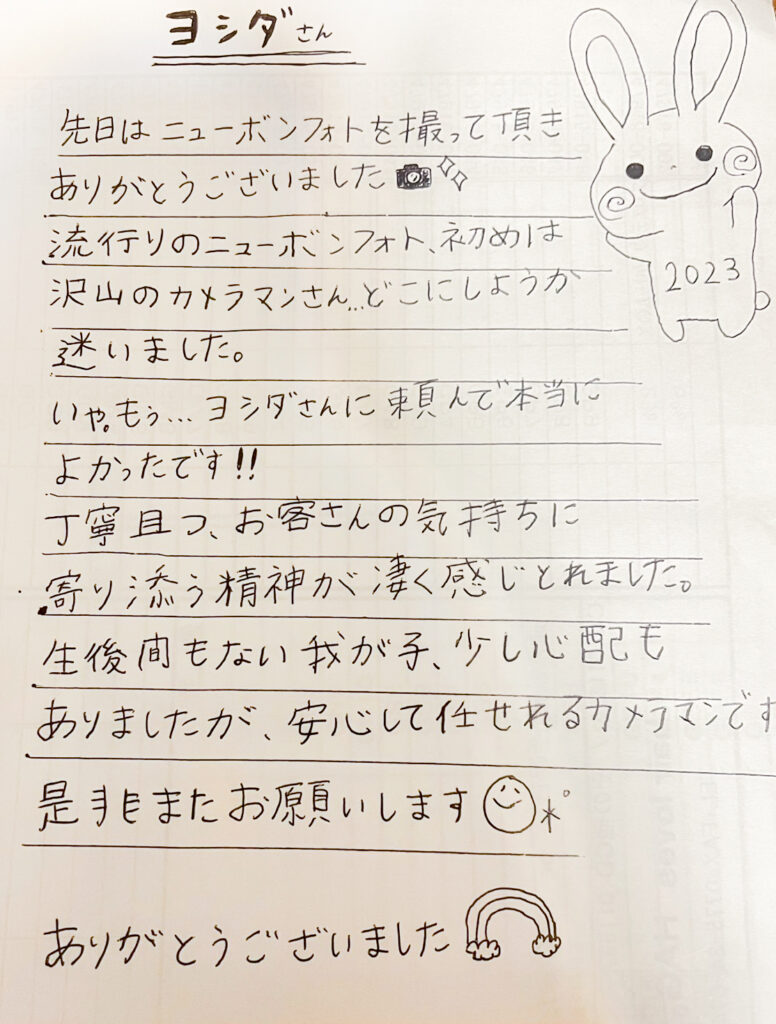 ヨシダさん
先日はニューボンフォトを撮って頂き
ありがとうございました
流行りのニューボンフォト、初めは
沢山のカメラマンさん…どこにしようか
迷いました。
いや。もぅ…ヨシダさんに頼んで本当に
よかったです!!
丁寧且つ、お客さんの気持ちに
寄り添う精神が凄く感じとれました。
生後間もない我が子、少し心配も
ありましたが、安心して任せれるカメラマンです
是非またお願いします
ありがとうございました
2023